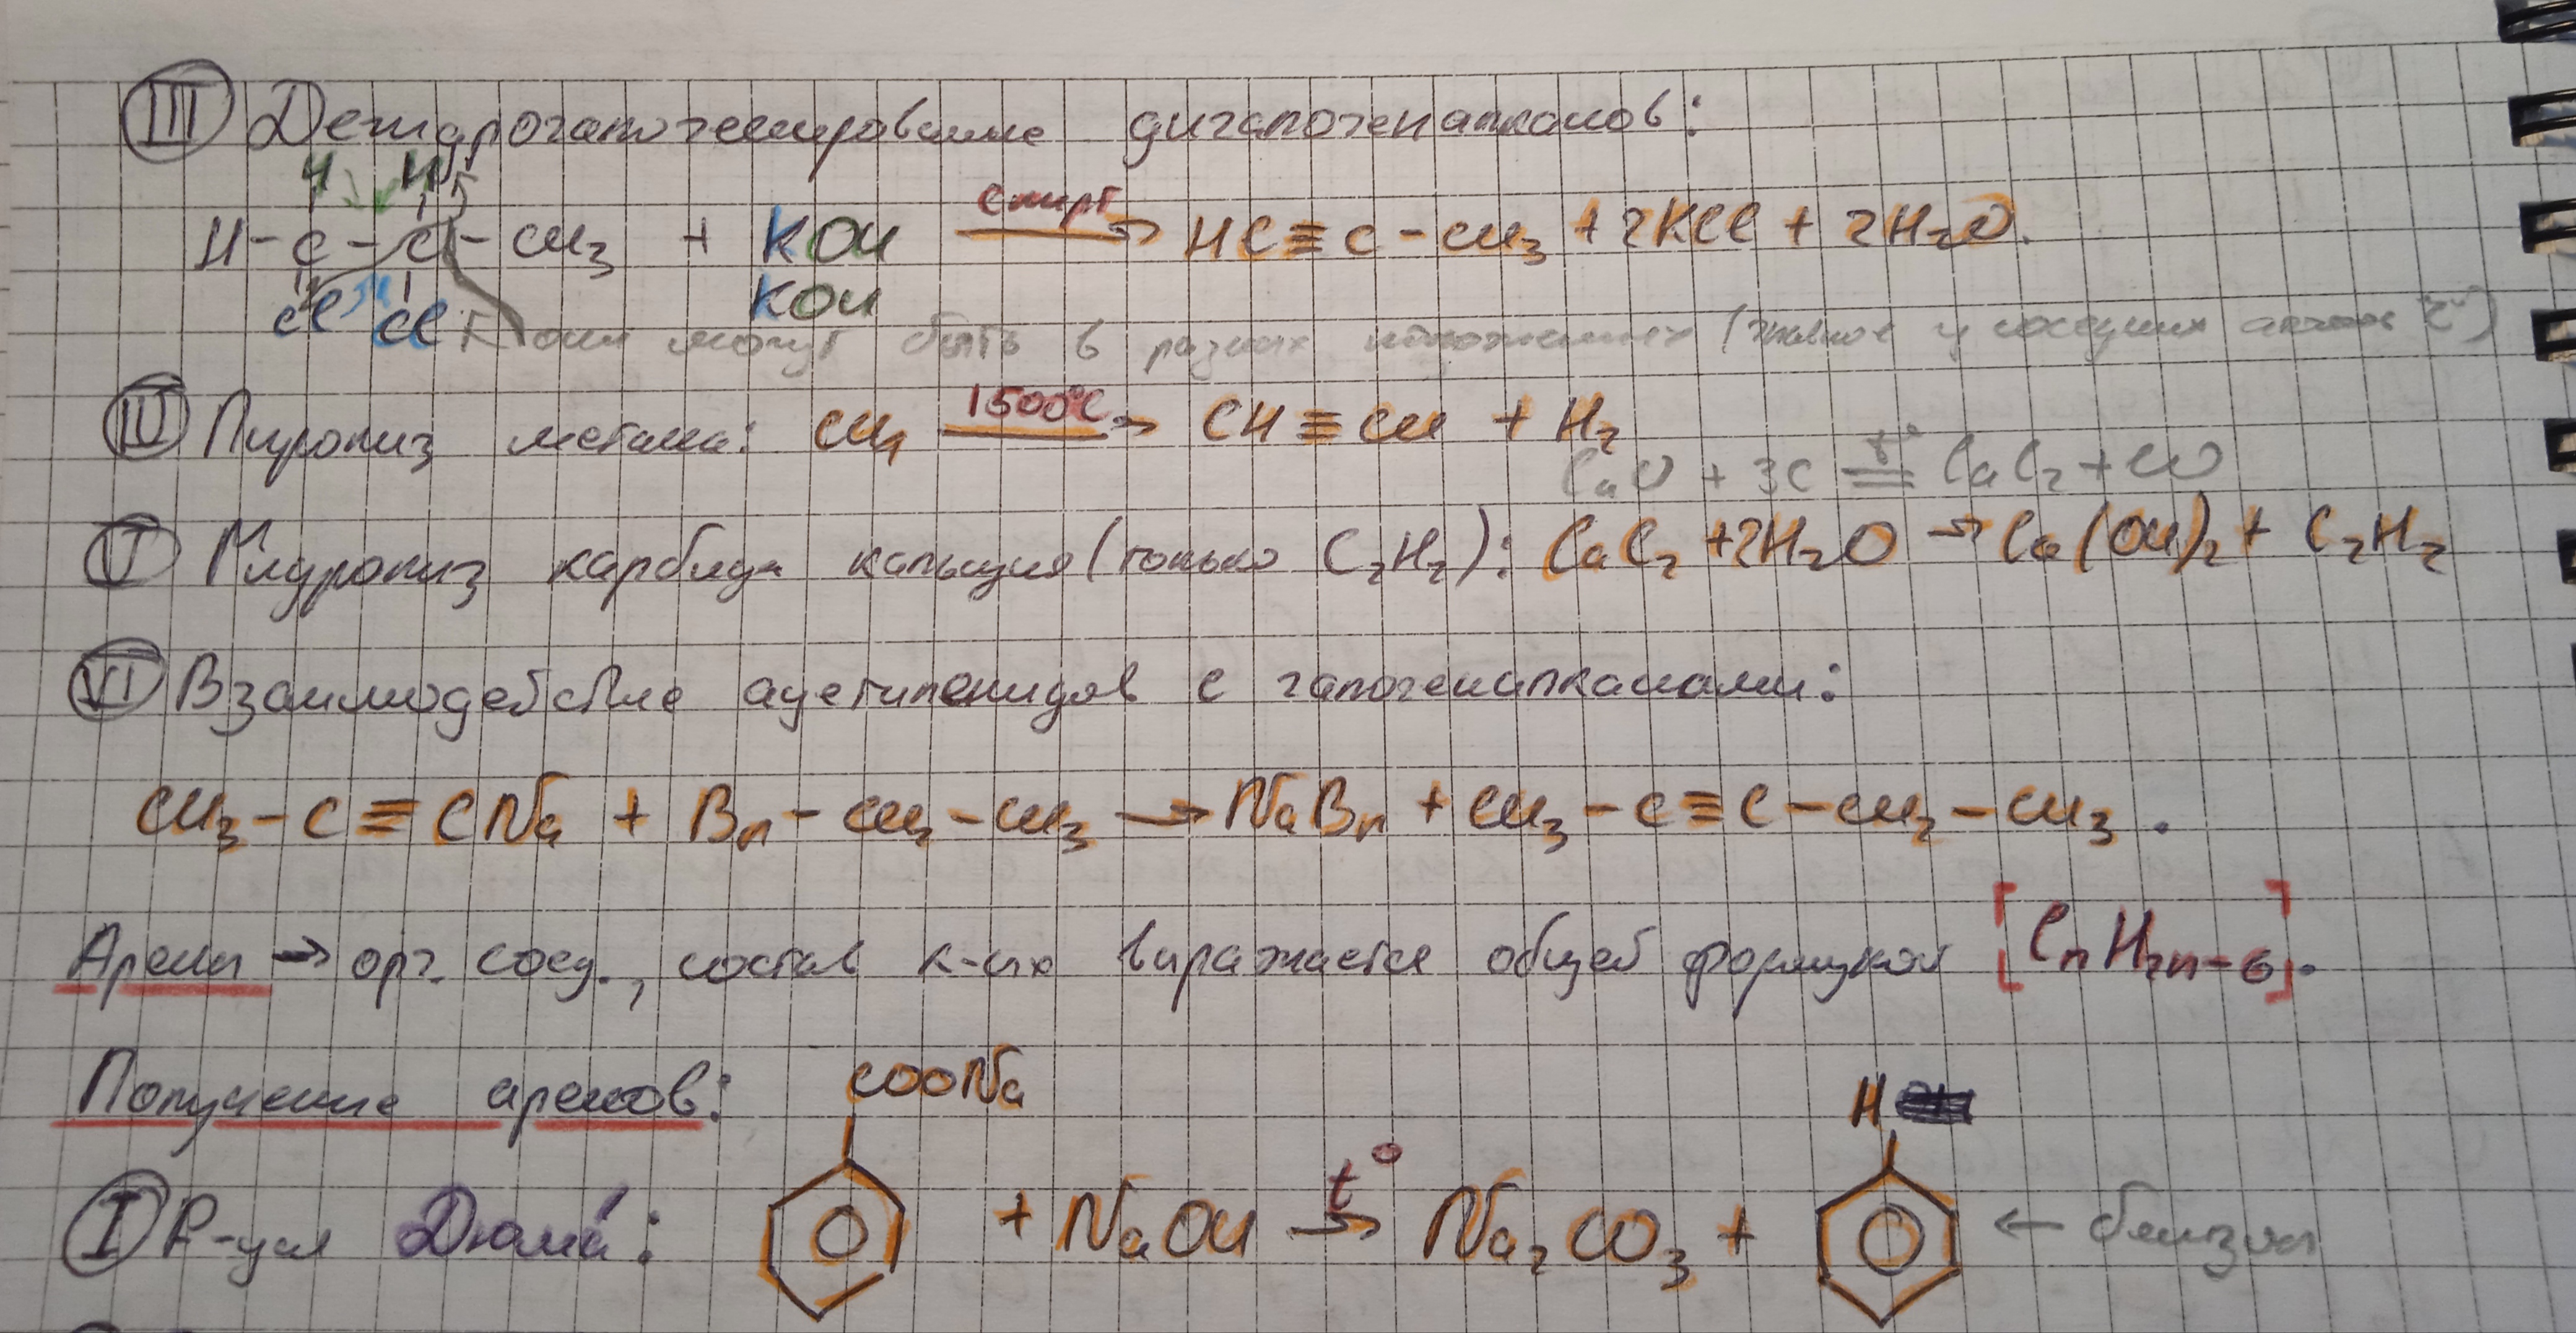 III Дегидрогалогенирование дигалогеналканов:
H H
H-C-C-CH3 + KOH спирт→ HC≡C-CH3 + 2KCl + 2H2O.
Cl Cl KOH
они могут быть в разных положениях (главное у соседних атомов "C")
IV Пиролиз метана: CH4 1500°C→ CH≡CH + H2
CaO + 3C =t°= CaC2 + CO
V Гидролиз карбида кальция (только C2H2): CaC2 + 2H2O → Ca(OH)2 + C2H2
VI Взаимодействие ацетиленидов с галогеналканами:
CH3-C≡CNa + Br-CH2-CH3 → NaBr + CH3-C≡C-CH2-CH3.
Арены → орг. соед., состав к-ых выражается общей формулой [CnH2n-6].
Получение аренов:
COONa H
I Р-ция Дюма́: + NaOH t°→ Na2CO3 + ← бензол